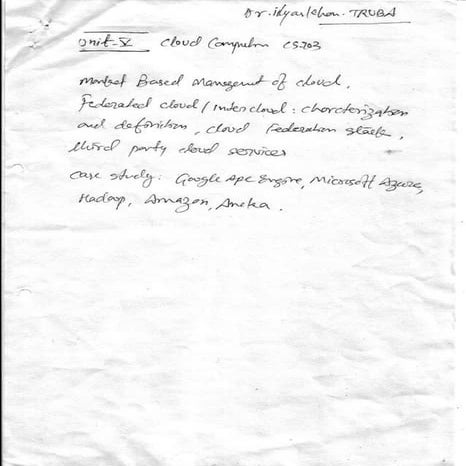 Dr. Ilyas Khan. TRUBA
Unit-V Cloud Computin CS.703
Market Based Management of cloud.
Federated cloud/Inter cloud: charcterization
and definition, cloud Federation stack,
third party cloud services
case study: Google App Engine, Microsoft Azure,
Hadoop, Amazon, Aneka.